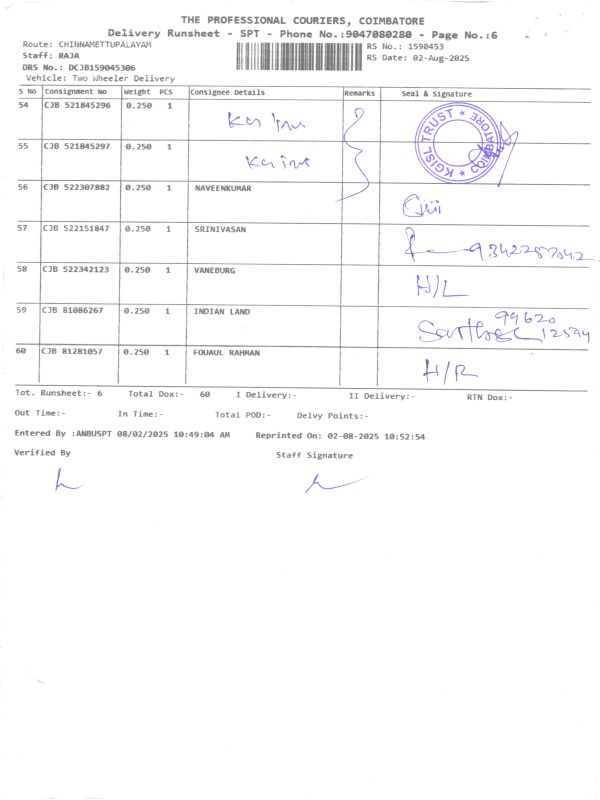 THE PROFESSIONAL COURIERS, COIMBATORE
Delivery Runsheet - SPT - Phone No.:9047080280 - Page No.:6
Route: CHINNAMETTUPALAYAM RS No.: 1590453
Staff: RAJA RS Date: 02-Aug-2025
DRS No.: DCJB159045306
Vehicle: Two Wheeler Delivery
S No Consignment No Weight PCS Consignee Details Remarks Seal & Signature
54 CJB 521845296 0.250 1
KGISL TRUST * COIMBATORE *
55 CJB 521845297 0.250 1
56 CJB 522307882 0.250 1 NAVEENKUMAR
57 CJB 522151847 0.250 1 SRINIVASAN
58 CJB 522342123 0.250 1 VANEBURG H/L
59 CJB 81086267 0.250 1 INDIAN LAND 99620
12594
60 CJB 81281057 0.250 1 FOUAUL RAHMAN H/R
Tot. Runsheet:- 6 Total Dox:- 60 I Delivery:- II Delivery:- RTN Dox:-
Out Time:- In Time:- Total POD:- Delvy Points:-
Entered By :ANBUSPT 08/02/2025 10:49:04 AM Reprinted On: 02-08-2025 10:52:54
Verified By Staff Signature